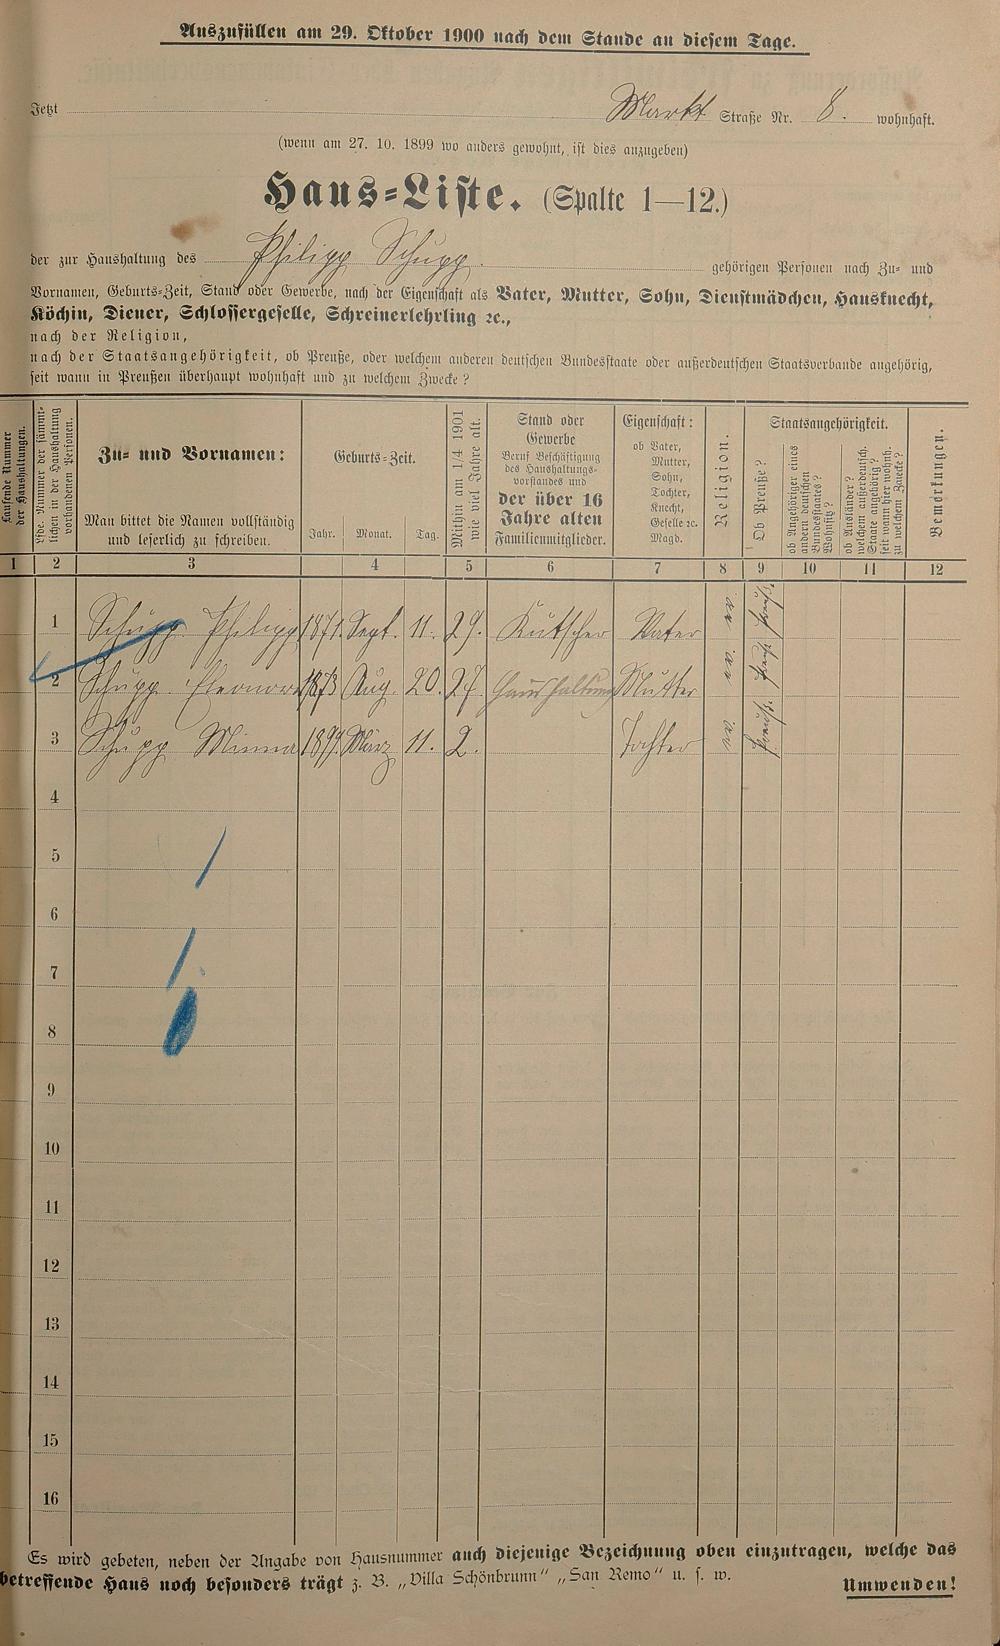 Auszufüllen am 29. Oktober 1900 nach dem Stande an diesem Tage.
Jetzt Markt Straße Nr. 8. wohnhaft.
(wenn am 27. 10. 1899 wo anders gewohnt, ist dies anzugeben)
Haus-Liste. (Spalte 1—12.)
der zur Haushaltung des Philipp Schupp. gehörigen Personen nach Zu- und
Vornamen, Geburts-Zeit, Stand oder Gewerbe, nach der Eigenschaft als Vater, Mutter, Sohn, Dienstmädchen, Hausknecht,
Köchin, Diener, Schlossergeselle, Schreinerlehrling ꝛc.,
nach der Religion,
nach der Staatsangehörigkeit, ob Preuße, oder welchem anderen deutschen Bundesstaate oder außerdeutschen Staatsverbande angehörig,
seit wann in Preußen überhaupt wohnhaft und zu welchem Zwecke?
Laufende Nummer
der Haushaltungen.
Lfde. Nummer der sämmt-
lichen in der Haushaltung
vorhandenen Personen.
Zu- und Vornamen:
Man bittet die Namen vollständig
und leserlich zu schreiben.
Geburts-Zeit.
Jahr. Monat. Tag.
Mithin am 1/4 1901
wie viel Jahre alt.
Stand oder
Gewerbe
Beruf Beschäftigung
des Haushaltungs-
vorstandes und
der über 16
Jahre alten
Familienmitglieder.
Eigenschaft:
ob Vater,
Mutter,
Sohn,
Tochter,
Knecht,
Geselle ꝛc.
Magd.
Religion.
Staatsangehörigkeit.
Ob Preuße?
ob Angehöriger eines
andern deutschen
Bundesstaates?
Wohnsitz?
ob Ausländer?
welchem außerdeutsch.
Staate angehörig?
seit wann hier wohnh.
zu welchem Zwecke?
Bemerkungen.
1 2 3 4 5 6 7 8 9 10 11 12
1 Schupp Philipp 1871. Sept. 11. 29. Kutscher Vater ev. Preuß.
2 Schupp Eleonore 1873 Aug. 20. 27. Haushaltung Mutter ev. Preuß.
3 Schupp Minna 1899. März 11. 2. Tochter ev. Preuß.
4
5
6
7
8
9
10
11
12
13
14
15
16
Es wird gebeten, neben der Angabe von Hausnummer auch diejenige Bezeichnung oben einzutragen, welche das
betreffende Haus noch besonders trägt z. B. „Villa Schönbrunn“ „San Remo“ u. s. w.
Umwenden!